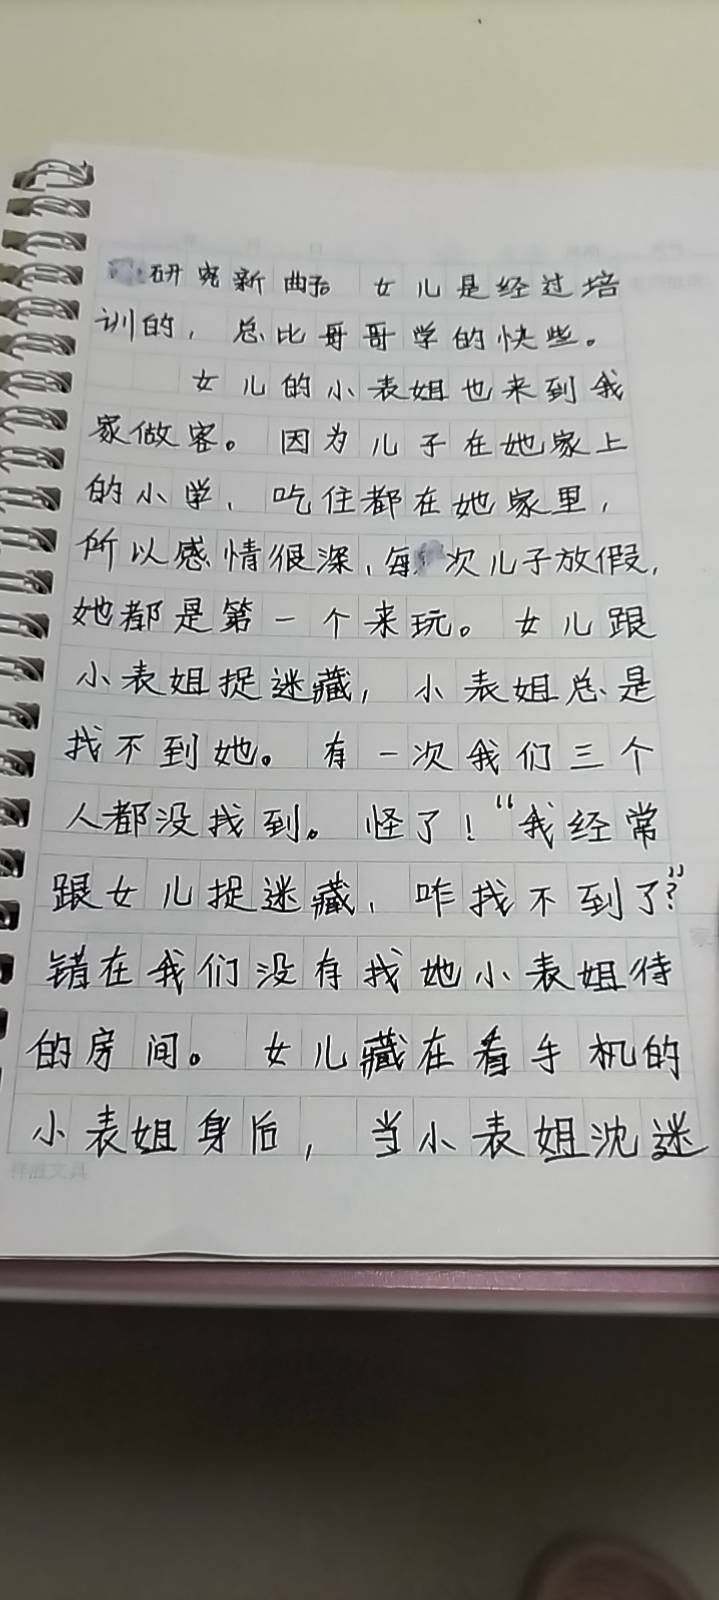 研究新曲子 女儿是经过培
训的，总比哥哥学的快些。
女儿的小表姐也来到我
家做客。因为儿子在她家上
的小学、吃住都在她家里，
所以感情很深、每次儿子放假，
她都是第一个来玩。女儿跟
小表姐捉迷藏，小表姐总是
找不到她。有一次我们三个
人都没找到。怪了！“我经常
跟女儿捉迷藏、咋找不到了？”
错在我们没有找她小表姐待
的房间。女儿藏在看手机的
小表姐身后，当小表姐沈迷